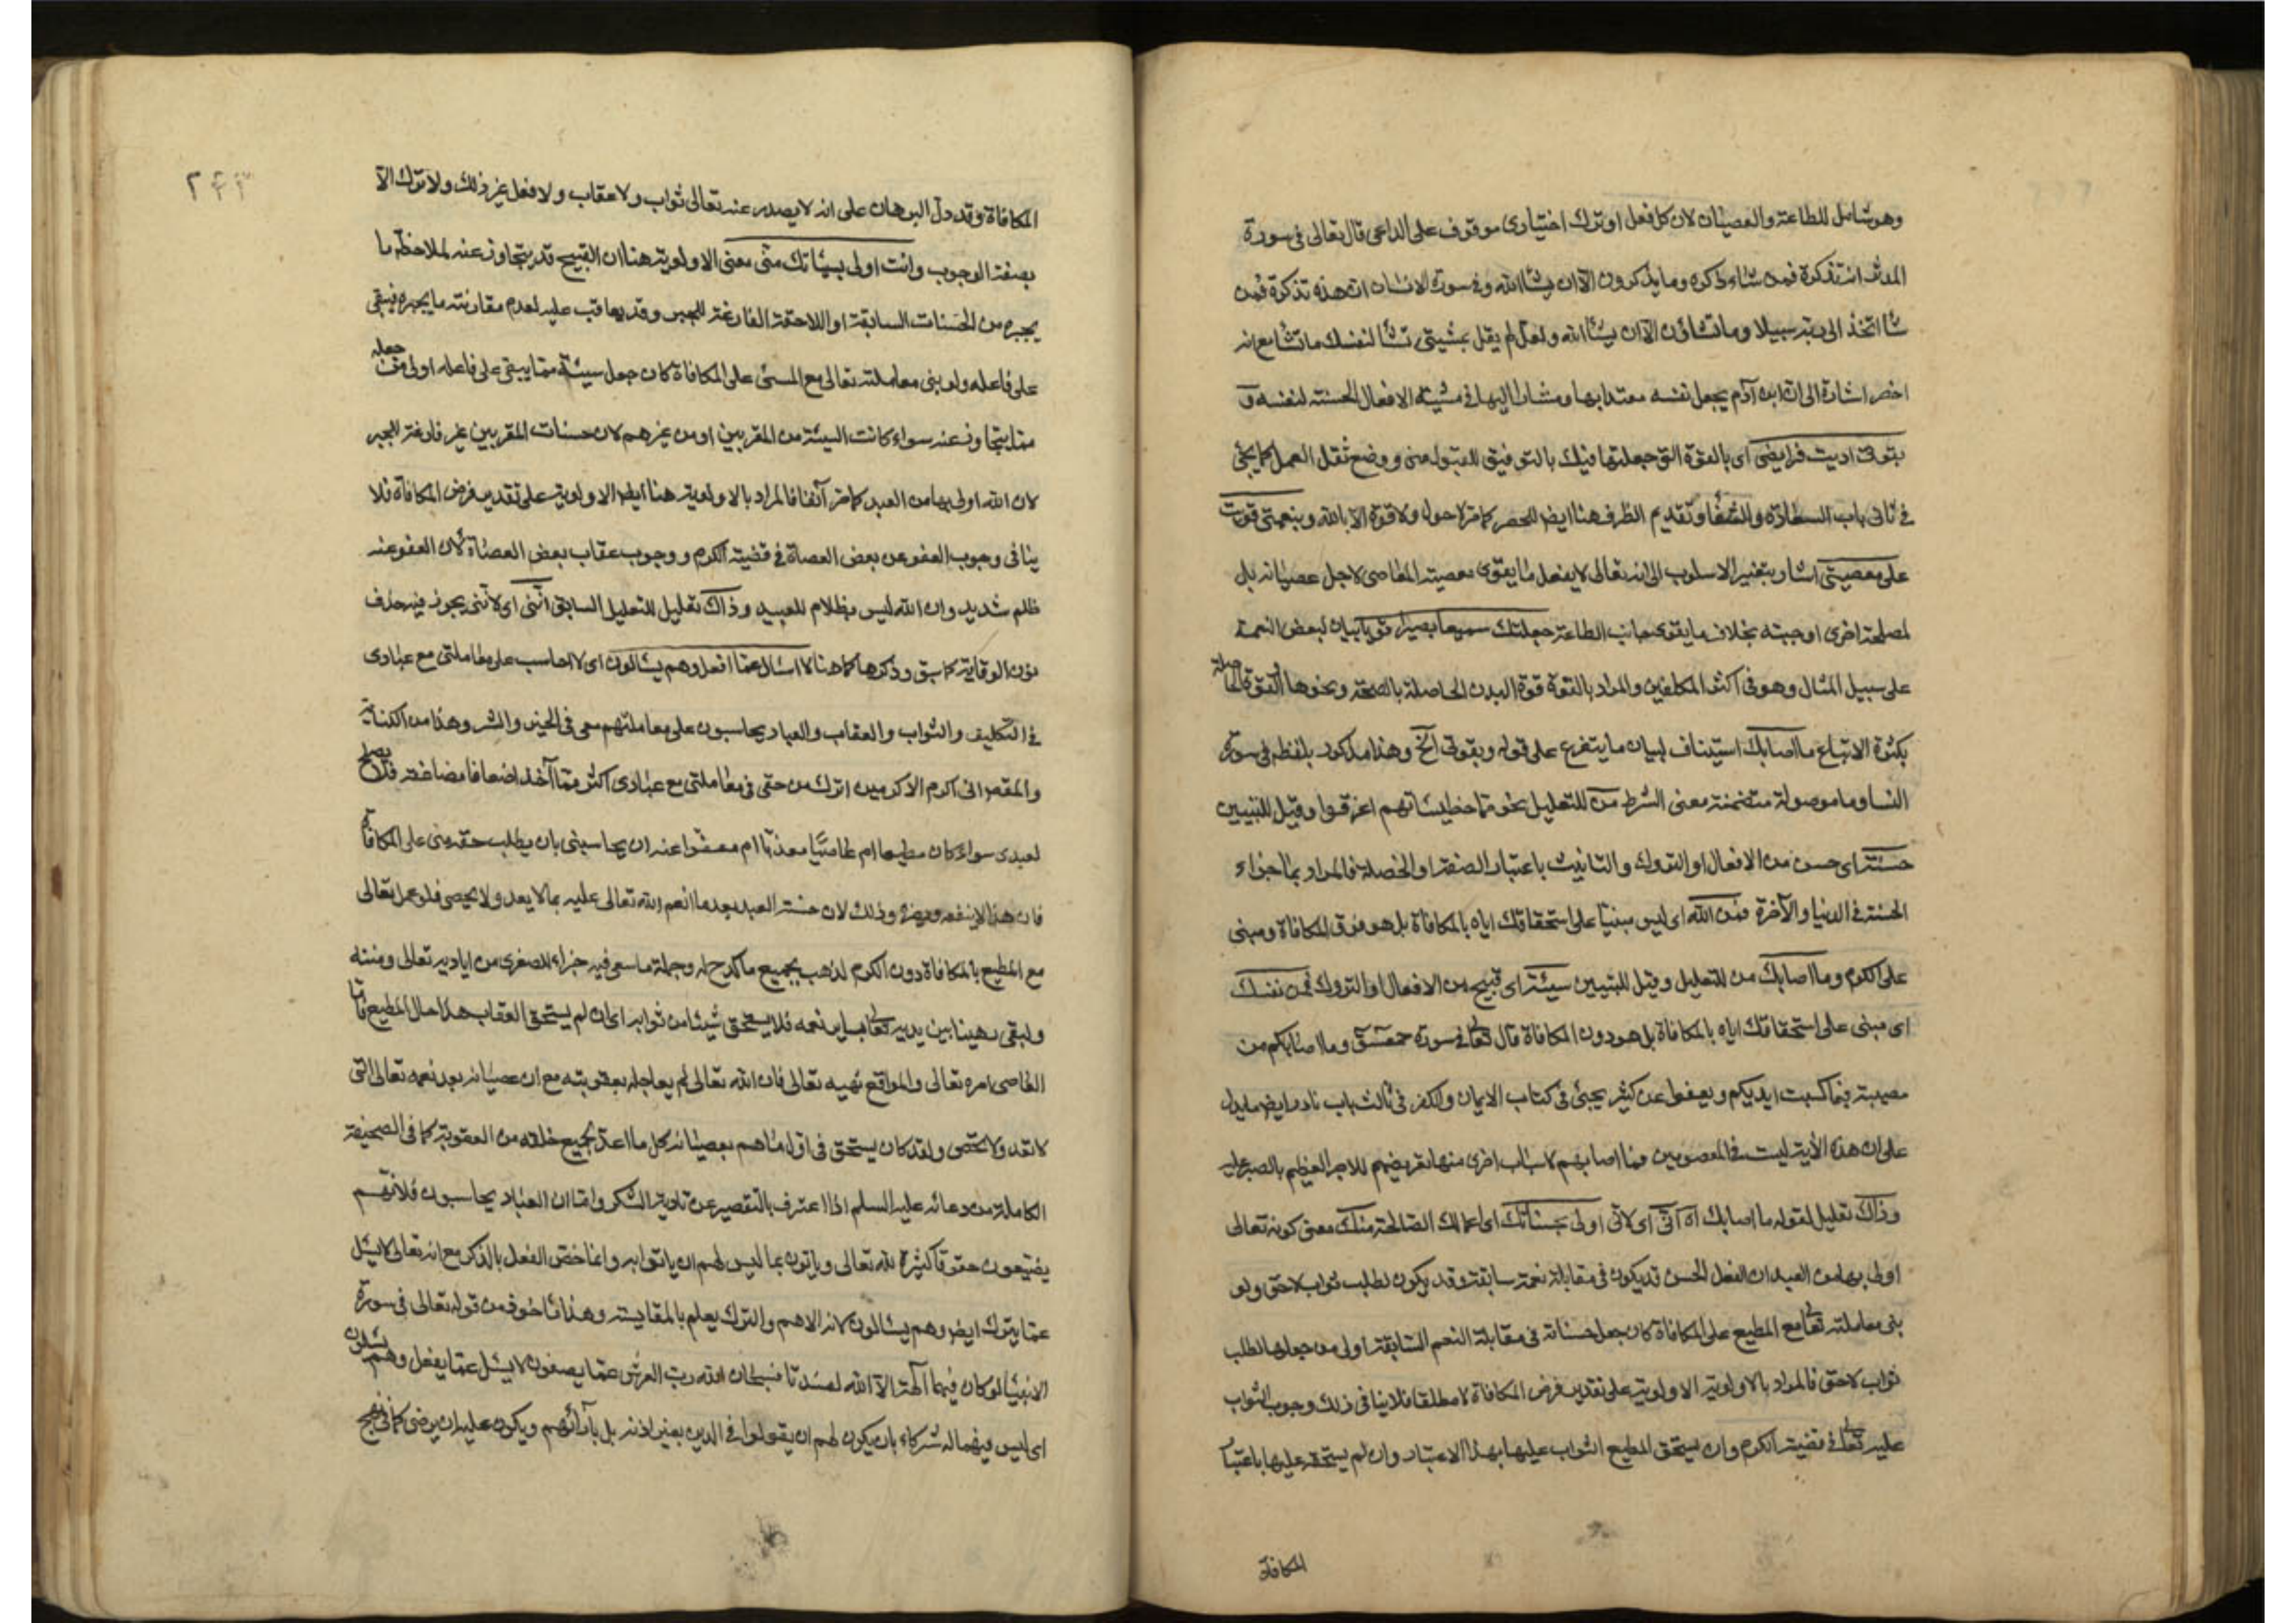 وهو شامل للطاعة والعصيان لان كل فعل او ترك اختيارى موقوف على الداعى قال تعالى فى سورة
المدثر انه تذكرة فمن شاء ذكره وما يذكرون الا ان يشا الله وفى سورة الانسان ان هذه تذكرة فمن
شا اتخذ الى ربه سبيلا وما تشاؤن الا ان يشا الله ولعل لم يقل بمشيتى تشا لنفسك ما تشا مع انه
اخصر اشارة الى ان ابن آدم يجعل نفسه معتدا بها ومشارا اليها فى مشيته الافعال الحسنة لنفسه و
بقوتى اديت فرايضى اى بالقوة التى جعلتها فيك بالتوفيق للقبول منى ووضع ثقل العمل كما يجئ
فى ثانى باب السعادة والشقا وتقديم الظرف هنا ايضا للحصر كما مر لا حول ولا قوة الا بالله وبنعمتى قويت
على معصيتى اشار بتغيير الاسلوب الى انه تعالى لا يفعل ما يقوى معصية العاصى لاجل عصيانه بل
لمصلحة اخرى اوجبته بخلاف ما يقوى جانب الطاعة جعلتك سميعا بصيرا قويا بيان لبعض النعمة
على سبيل المثال وهو فى اكثر المكلفين والمراد بالقوة قوة البدن الحاصلة بالصحة ونحوها او القوة الحاصلة
بكثرة الاتباع ما اصابك استيناف لبيان ما يتفرع على قوله وبقوتى الخ وهذا مذكور بلفظه فى سورة
النسا وما موصولة متضمنة معنى الشرط من للتعليل نحو مما خطيئاتهم اغرقوا وقيل للتبيين
حسنة اى حسن من الافعال او التروك والتانيث باعتبار الصفة او الخصلة فالمراد بما جزاء
الحسنة فى الدنيا والآخرة فمن الله اى ليس مبنيا على استحقاقك اياه بالمكافاة بل هو فوق المكافاة ومبنى
على الكرم وما اصابك من للتعليل وقيل للتبيين سيئة اى قبيح من الافعال او التروك فمن نفسك
اى مبنى على استحقاقك اياه بالمكافاة بل هو دون المكافاة قال تعالى فى سورة حمعسق وما اصابكم من
مصيبة فبما كسبت ايديكم ويعفوا عن كثير يجئ فى كتاب الايمان والكفر فى ثالث باب نادر ايضا ما يدل
على ان هذه الآية ليست فى المعصومين فما اصابهم لاسباب اخرى منها تعريضهم للاجر العظيم بالصبر عليه
وذاك تعليل لقوله ما اصابك اه انى اى لانى اولى بحسناتك اى اعمالك الصالحة منك معنى كونه تعالى
اولى بها من العبد ان الفعل الحسن قد يكون فى مقابلة نعمة سابقة وقد يكون لطلب ثواب لاحق ولو
بنى معاملته تعالى مع المطيع على المكافاة كان جعل حسناته فى مقابلة النعم السابقة اولى من جعلها لطلب
ثواب لاحق فالمراد بالاولوية الاولوية على تقدير فرض المكافاة لا مطلقا فلا ينافى ذلك وجوب الثواب
عليه تعالى فى قضية الكرم وان يستحق المطيع الثواب عليها بهذا الاعتبار وان لم يستحقه عليها باعتبا
المكافاة
٢٤٣
المكافاة وقد دل البرهان على انه لا يصدر عنه تعالى ثواب ولا عقاب ولا فعل غير ذلك ولا ترك الا
بصفة الوجوب وانت اولى بسيئاتك منى معنى الاولوية هنا ان القبيح قد يتجاوز عنه لملاحظة ما
يجبره من الحسنات السابقة او اللاحقة الفارغة للجبر وقد يعاقب عليه لعدم مقارنته ما يجبره فيبقى
على فاعله ولو بنى معاملته تعالى مع المسئ على المكافاة كان جعل سيئة مما يبقى على فاعله اولى من جعله
مما يتجاوز عنه سواء كانت السيئة من المقربين او من غيرهم لان حسنات المقربين غير فارغة للجبر
لان الله اولى بها من العبد كما مر آنفا فالمراد بالاولوية هنا ايضا الاولوية على تقدير فرض المكافاة فلا
ينافى وجوب العفو عن بعض العصاة فى قضية الكرم ووجوب عقاب بعض العصاة لان العفو عنه
ظلم شديد وان الله ليس بظلام للعبيد وذاك تعليل للتعليل السابق اننى اى لاننى يجوز فيه حذف
نون الوقاية كما سبق وذكرها كما هنا لا اسال عما افعل وهم يسالون اى لا احاسب على معاملتى مع عبادى
فى التكليف والثواب والعقاب والعباد يحاسبون على معاملتهم معى فى الخير والشر وهذا من الكناية
والمقصر انى اكرم الاكرمين اترك من حقى فى معاملتى مع عبادى اكثر مما آخذ اضعافا مضاعفة فلا يصلح
لعبدى سواء كان مطيعا ام عاصيا معذبا ام معفوا عنه ان يحاسبنى بان يطلب حقه منى على المكافاة
فان هذا لا ينفعه ويضره وذلك لان حسنة العبد بعد ما انعم الله تعالى عليه بما لا يعد ولا يحصى فلو عمل تعالى
مع المطيع بالمكافاة دون الكرم لذهب بجميع ما كدح له وجملة ما سعى فيه جزاء للصغرى من اياديه تعالى ومننه
ولبقى رهينا بين يديه تعالى بساير نعمه فلا يستحق شيئا من ثوابه اى ان لم يستحق العقاب هذا حال المطيع فاما
العاصى امره تعالى والمواقع نهيه تعالى فان الله تعالى لم يعاجله بعقوبته مع ان عصيانه بعد نعمه تعالى التى
لا تعد ولا تحصى ولقد كان يستحق فى اول ما هم بعصيانه كل ما اعد لجميع خلقه من العقوبة كما فى الصحيفة
الكاملة من دعائه عليه السلم اذا اعترف بالتقصير عن تادية الشكر واما ان العباد يحاسبون فلانهم
يضيعون حقوقا كثيرة لله تعالى وياتون بما ليس لهم ان ياتوا به وانما خص الفعل بالذكر مع انه تعالى لا يسئل
عما يترك ايضا وهم يسالون لانه الاهم والترك يعلم بالمقايسة وهذا ماخوذ من قوله تعالى فى سورة
الانبيا لو كان فيهما آلهة الا الله لفسدتا فسبحان الله رب العرش عما يصفون لا يسئل عما يفعل وهم يسئلون
اى ليس فيهما له شركاء بان يكون لهم ان يقولوا فى الدين بغير اذنه بل بآرائهم ويكون عليه ان يرضى كما فى نهج